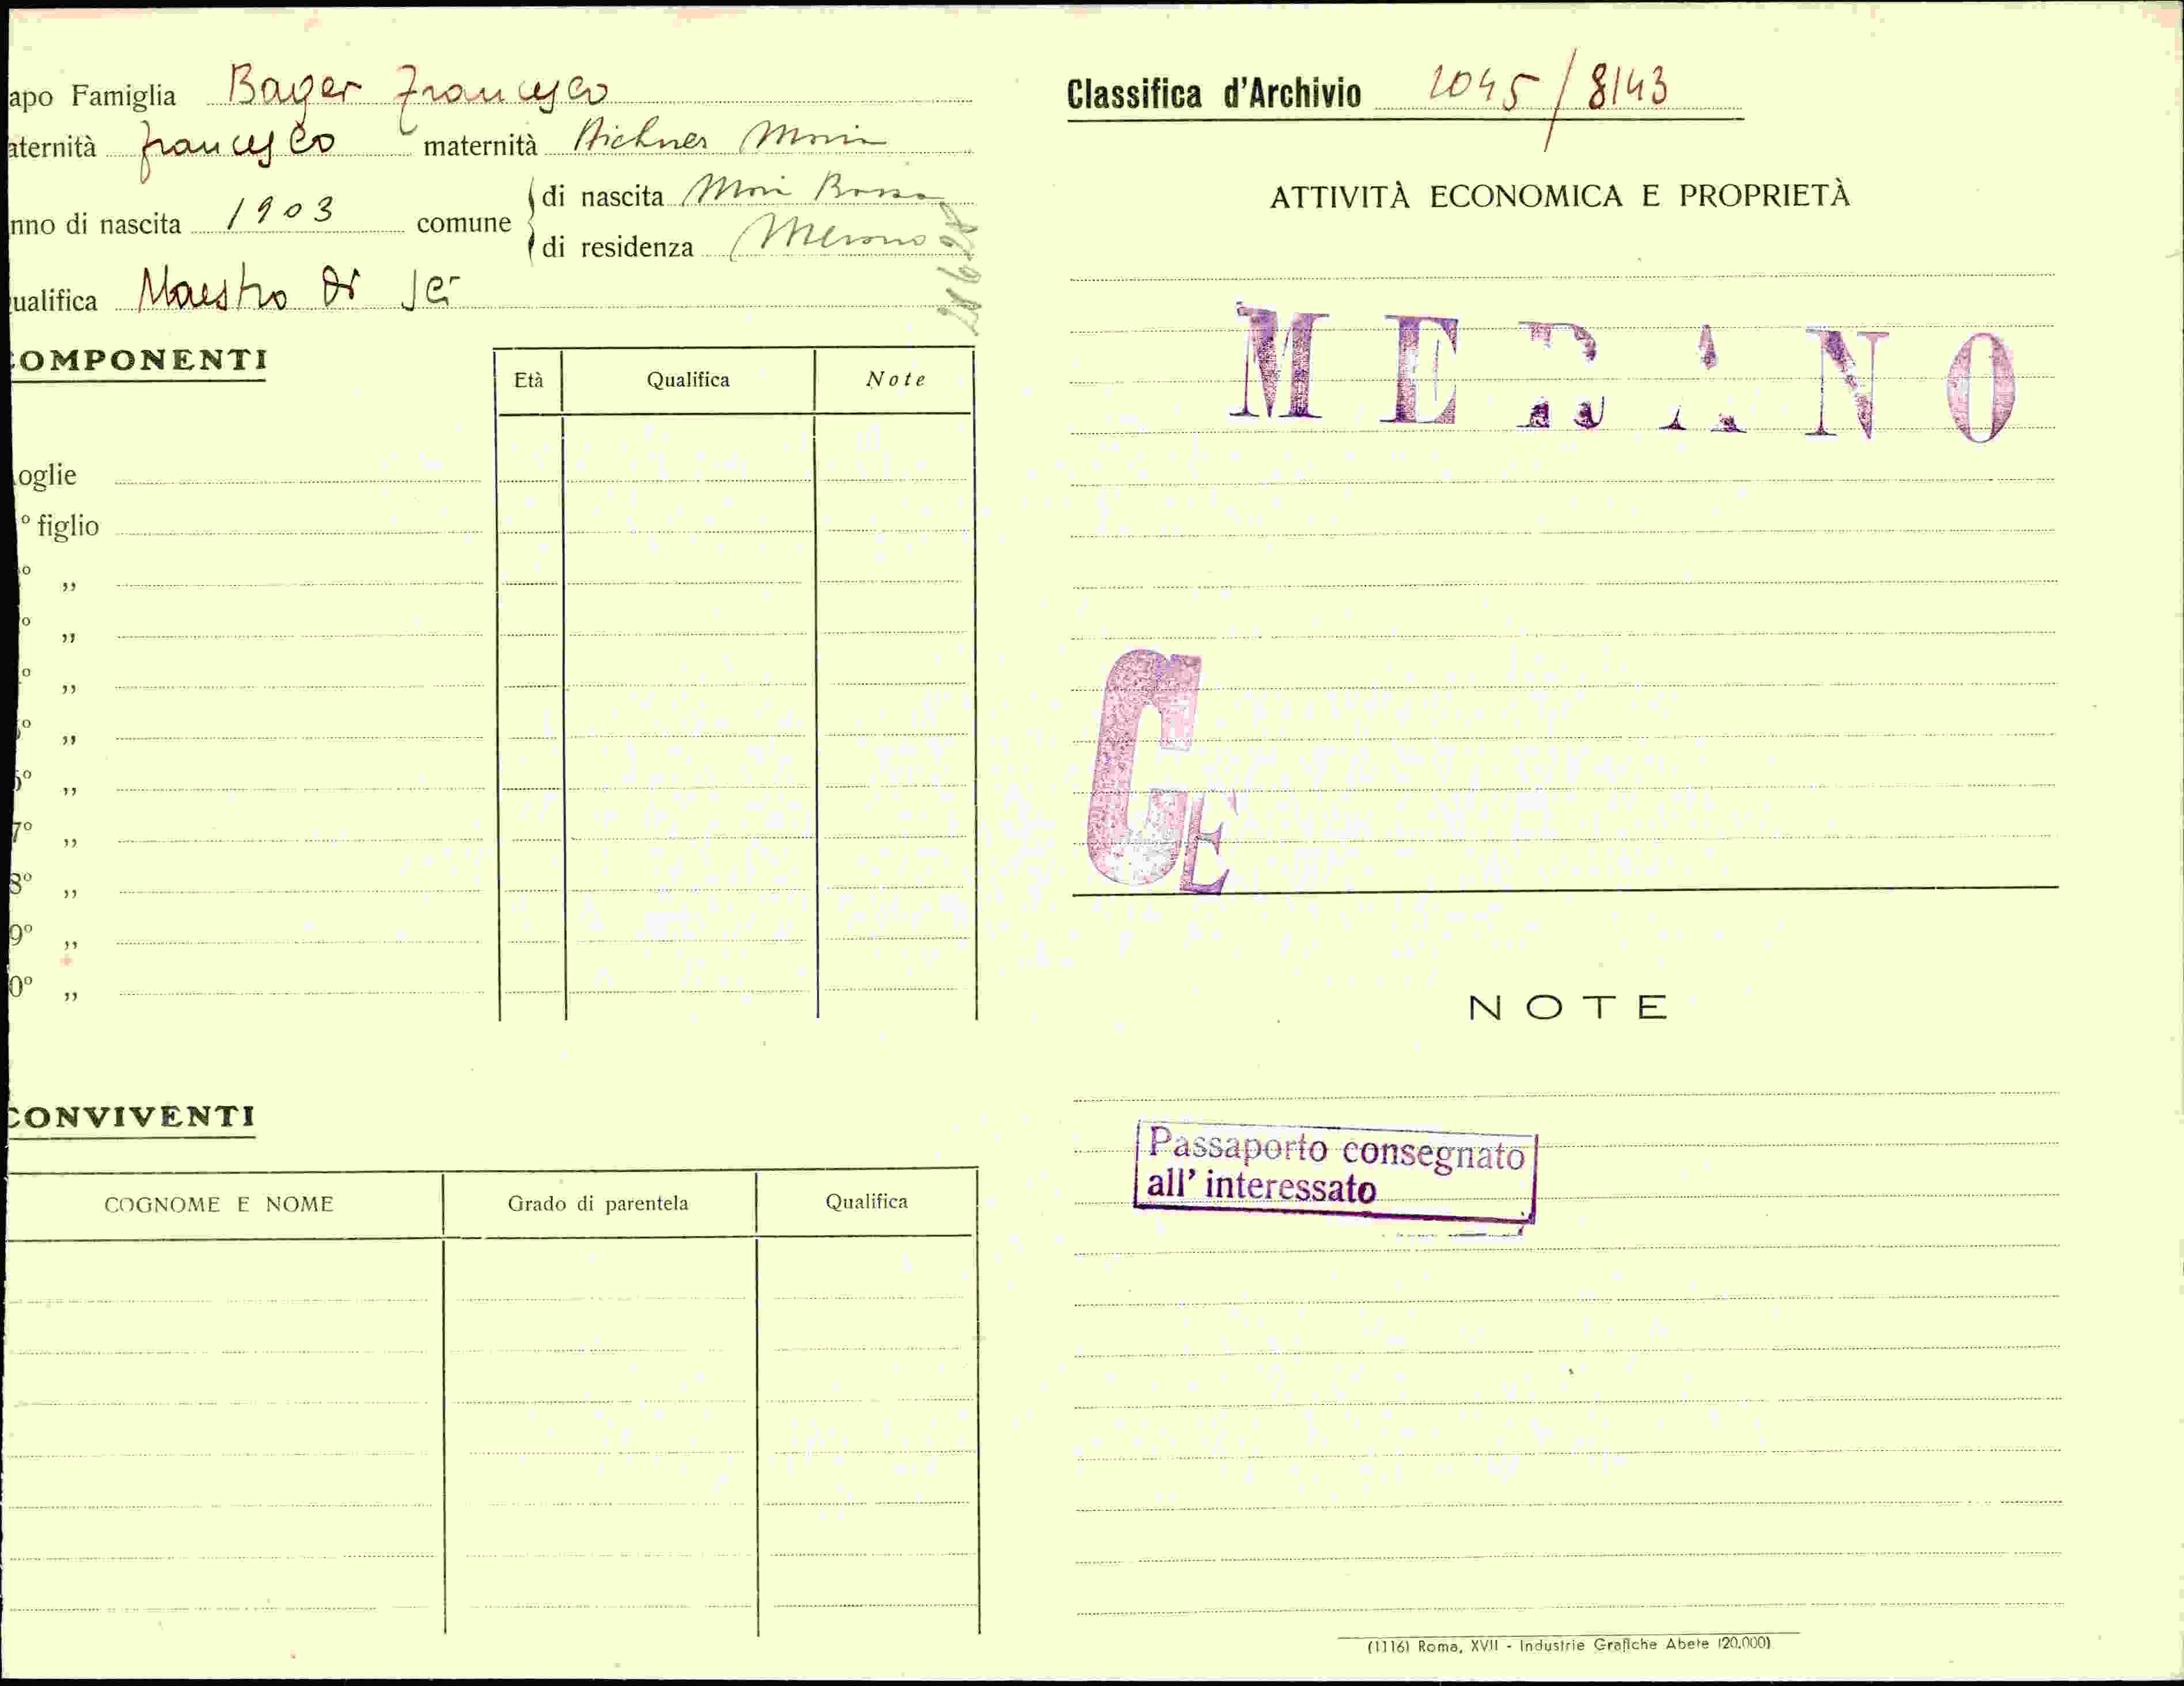 apo Famiglia Bayer Francesco
aternità Francesco maternità Aichner Maria
nno di nascita 1903 comune di nascita
di residenza Merano
ualifica Maestro di sci
OMPONENTI
Età Qualifica Note
oglie
° figlio
° „
° „
° „
° „
6° „
7° „
8° „
9° „
0° „
CONVIVENTI
COGNOME E NOME Grado di parentela Qualifica
Classifica d'Archivio 1045/8143
ATTIVITÀ ECONOMICA E PROPRIETÀ
MERANO
CE
NOTE
Passaporto consegnato
all' interessato
(1116) Roma, XVII - Industrie Grafiche Abete (20.000)